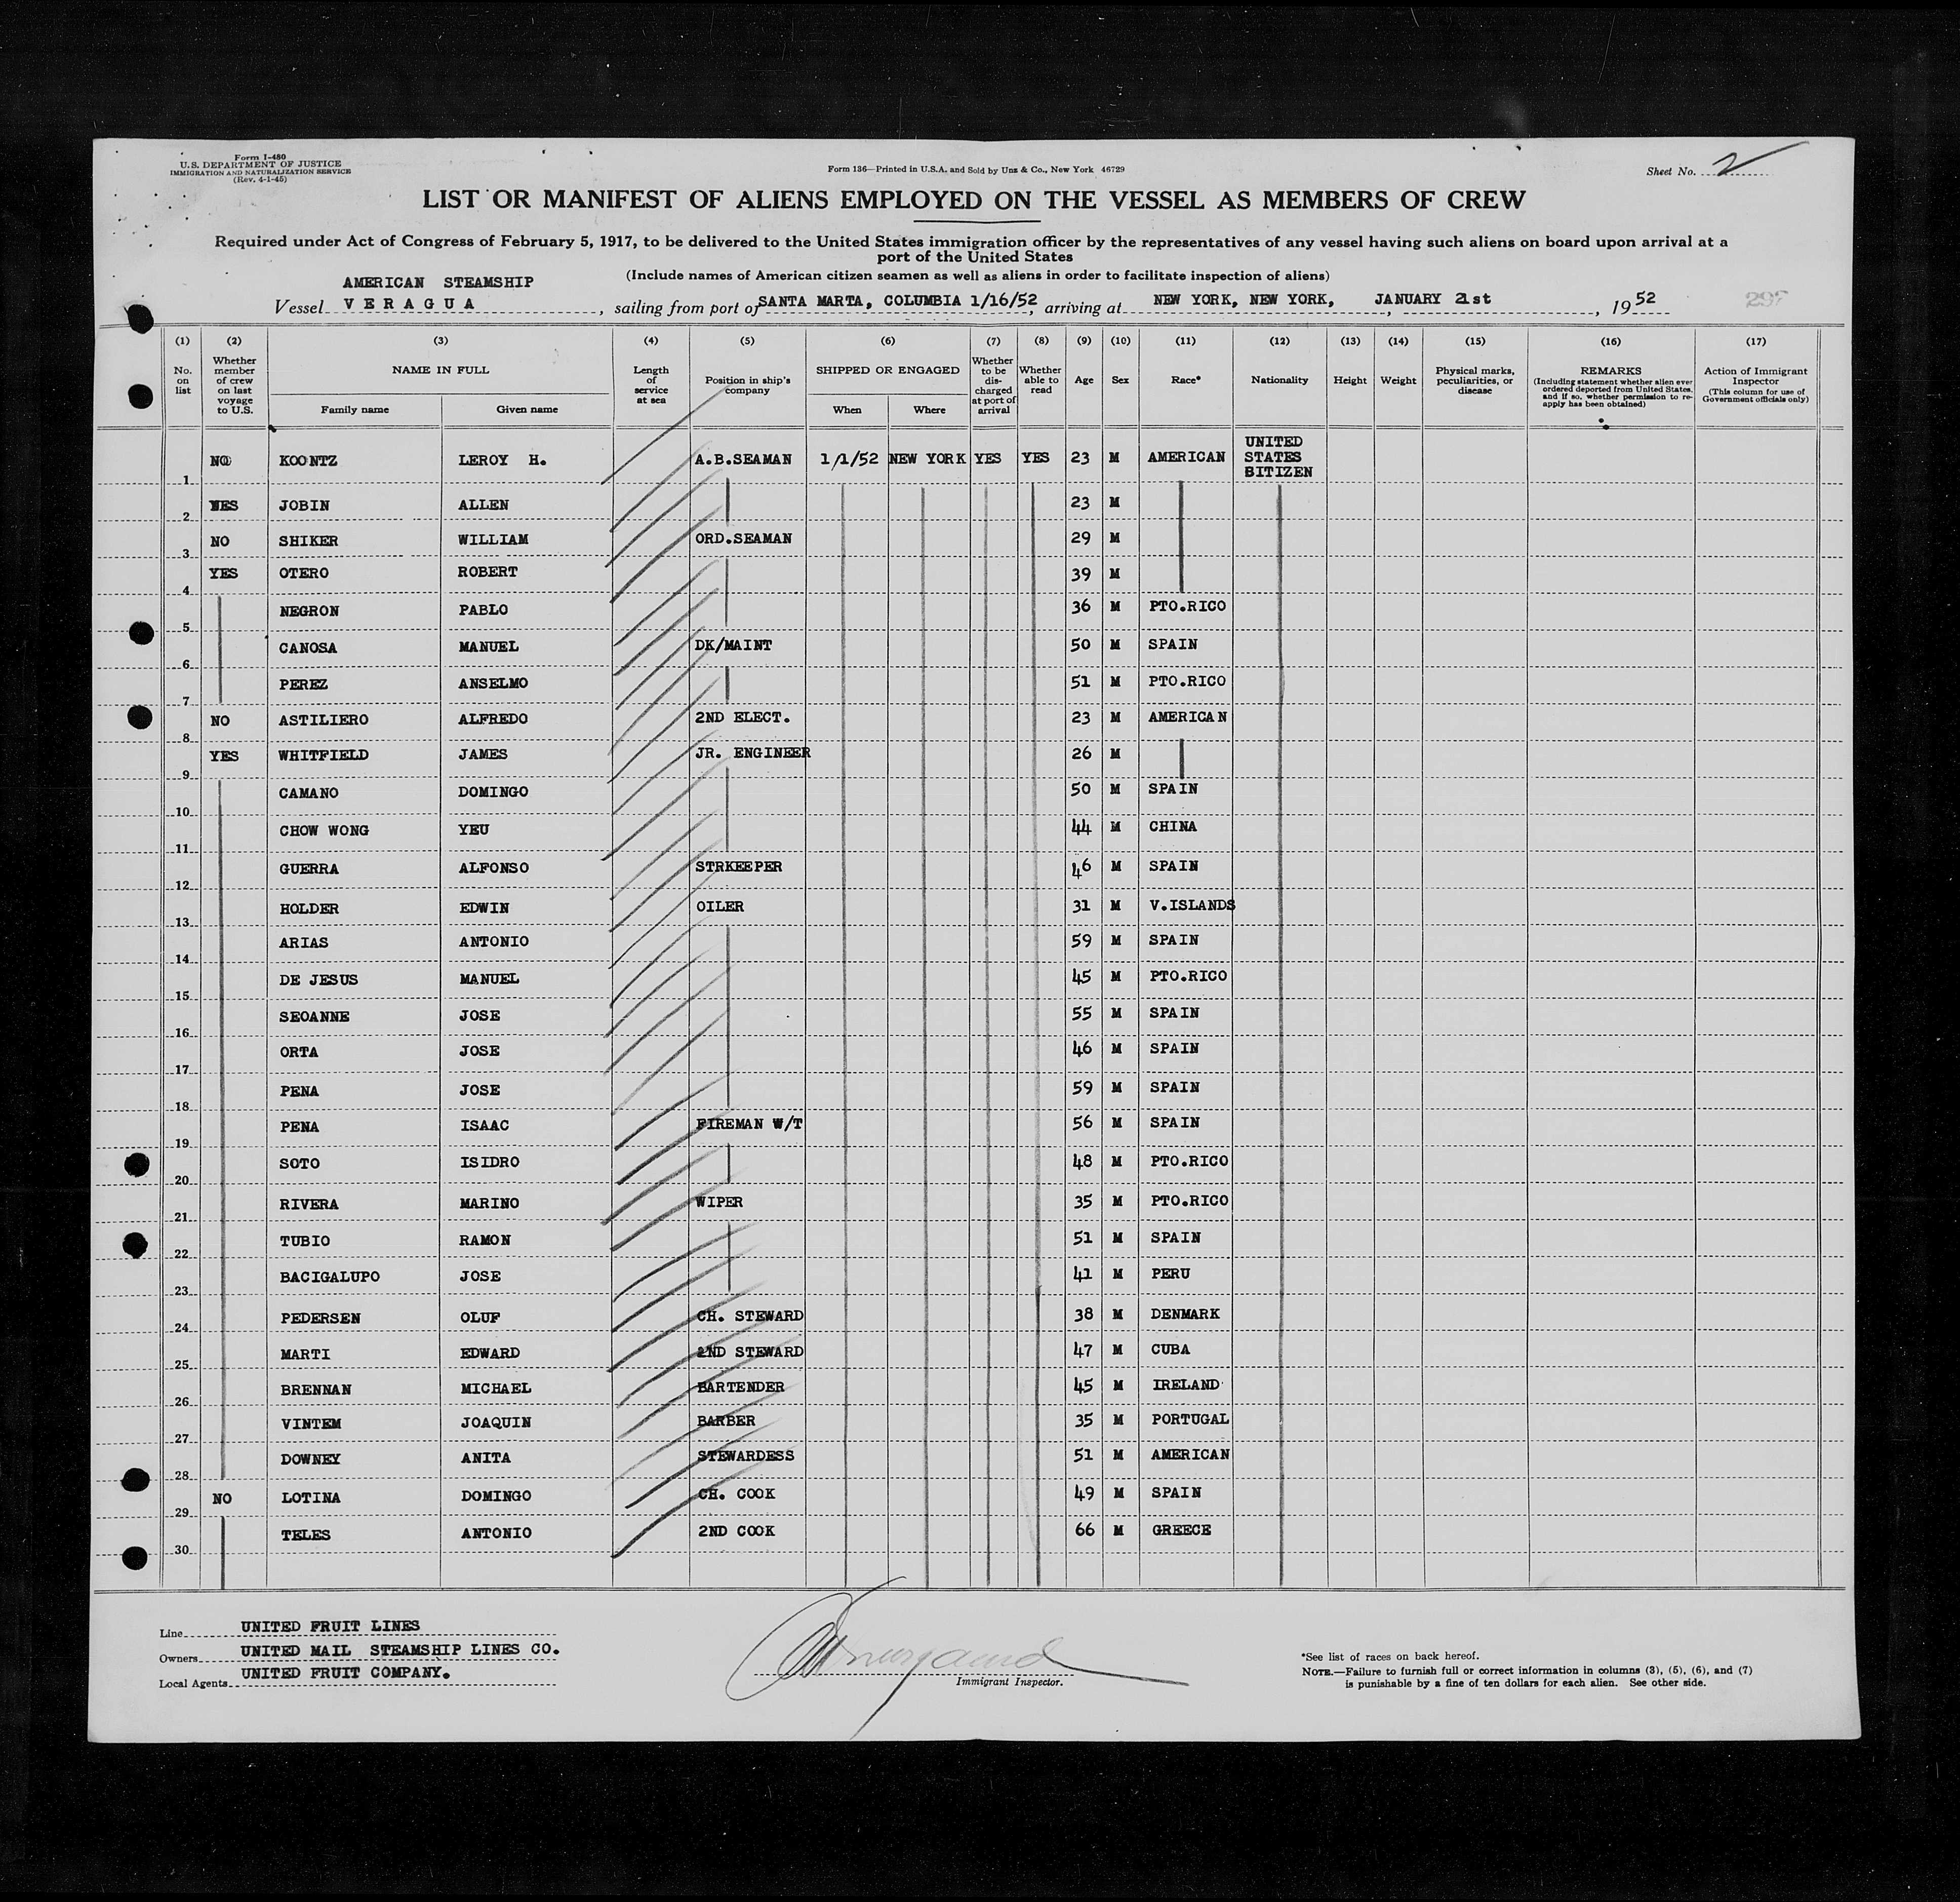 Form I-480
U.S. DEPARTMENT OF JUSTICE
IMMIGRATION AND NATURALIZATION SERVICE
(Rev. 4-1-45)
Form 136—Printed in U.S.A. and Sold by Unz & Co., New York 46729
Sheet No. 2
LIST OR MANIFEST OF ALIENS EMPLOYED ON THE VESSEL AS MEMBERS OF CREW
Required under Act of Congress of February 5, 1917, to be delivered to the United States immigration officer by the representatives of any vessel having such aliens on board upon arrival at a
port of the United States
(Include names of American citizen seamen as well as aliens in order to facilitate inspection of aliens)
AMERICAN STEAMSHIP
Vessel VERAGUA, sailing from port of SANTA MARTA, COLUMBIA 1/16/52, arriving at NEW YORK, NEW YORK, JANUARY 21st, 1952 297
(1) (2) (3) (4) (5) (6) (7) (8) (9) (10) (11) (12) (13) (14) (15) (16) (17)
No. on list
Whether member of crew on last voyage to U.S.
NAME IN FULL
Family name Given name
Length of service at sea
Position in ship's company
SHIPPED OR ENGAGED
When Where
Whether to be discharged at port of arrival
Whether able to read
Age
Sex
Race*
Nationality
Height
Weight
Physical marks, peculiarities, or disease
REMARKS
(Including statement whether alien ever ordered deported from United States, and if so, whether permission to re-apply has been obtained)
Action of Immigrant Inspector
(This column for use of Government officials only)
1 NO KOONTZ LEROY H. A.B.SEAMAN 1/1/52 NEW YORK YES YES 23 M AMERICAN UNITED STATES BITIZEN
2 YES JOBIN ALLEN 23 M
3 NO SHIKER WILLIAM ORD.SEAMAN 29 M
4 YES OTERO ROBERT 39 M
5 NEGRON PABLO 36 M PTO.RICO
6 CANOSA MANUEL DK/MAINT 50 M SPAIN
7 PEREZ ANSELMO 51 M PTO.RICO
8 NO ASTILIERO ALFREDO 2ND ELECT. 23 M AMERICAN
9 YES WHITFIELD JAMES JR. ENGINEER 26 M
10 CAMANO DOMINGO 50 M SPAIN
11 CHOW WONG YEU 44 M CHINA
12 GUERRA ALFONSO STRKEEPER 46 M SPAIN
13 HOLDER EDWIN OILER 31 M V.ISLANDS
14 ARIAS ANTONIO 59 M SPAIN
15 DE JESUS MANUEL 45 M PTO.RICO
16 SEOANNE JOSE 55 M SPAIN
17 ORTA JOSE 46 M SPAIN
18 PENA JOSE 59 M SPAIN
19 PENA ISAAC FIREMAN W/T 56 M SPAIN
20 SOTO ISIDRO 48 M PTO.RICO
21 RIVERA MARINO WIPER 35 M PTO.RICO
22 TUBIO RAMON 51 M SPAIN
23 BACIGALUPO JOSE 41 M PERU
24 PEDERSEN OLUF CH. STEWARD 38 M DENMARK
25 MARTI EDWARD 2ND STEWARD 47 M CUBA
26 BRENNAN MICHAEL BARTENDER 45 M IRELAND
27 VINTEM JOAQUIN BARBER 35 M PORTUGAL
28 DOWNEY ANITA STEWARDESS 51 M AMERICAN
29 NO LOTINA DOMINGO CH. COOK 49 M SPAIN
30 TELES ANTONIO 2ND COOK 66 M GREECE
Line UNITED FRUIT LINES
Owners UNITED MAIL STEAMSHIP LINES CO.
Local Agents UNITED FRUIT COMPANY.
Immigrant Inspector.
*See list of races on back hereof.
NOTE.—Failure to furnish full or correct information in columns (3), (5), (6), and (7)
is punishable by a fine of ten dollars for each alien. See other side.